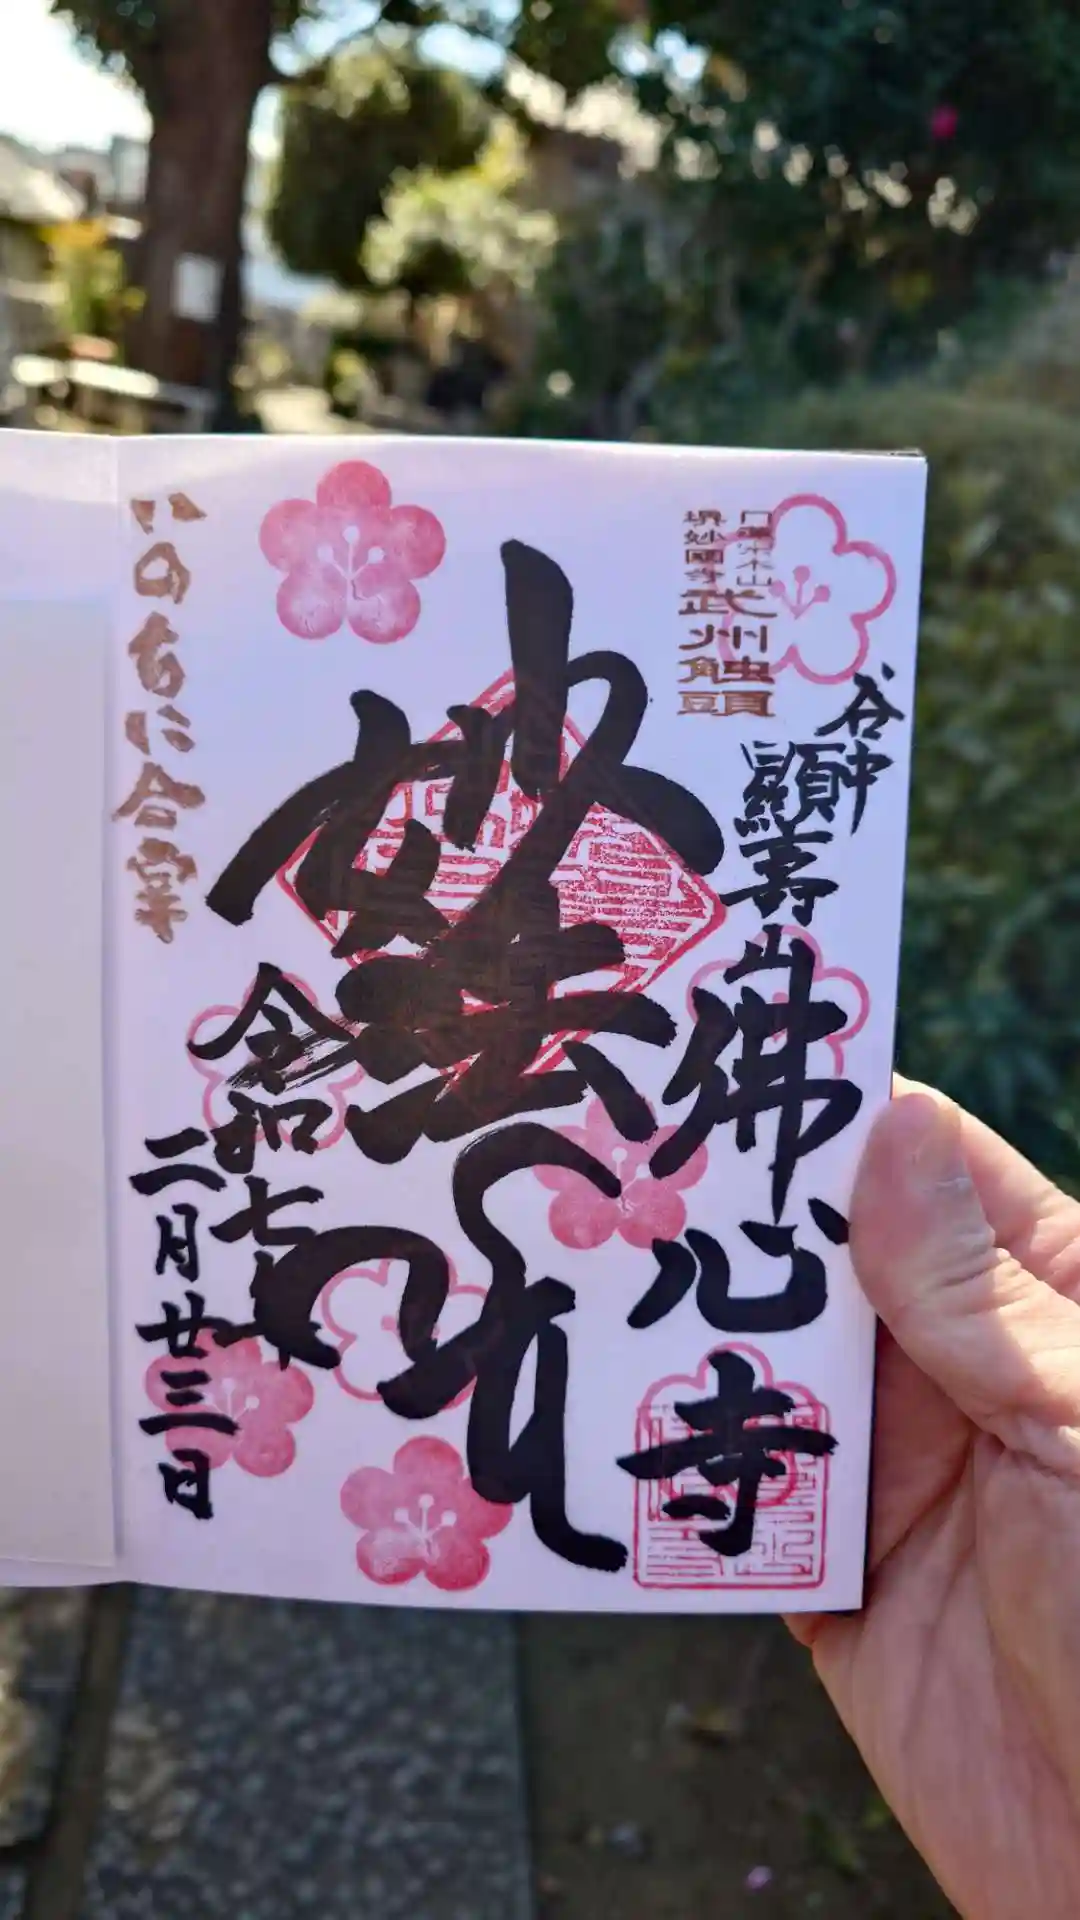 日蓮宗本山
堺妙國寺
武州触頭
谷中
顯壽山
佛心寺
妙法
令和七年
二月廿三日
いのちに合掌